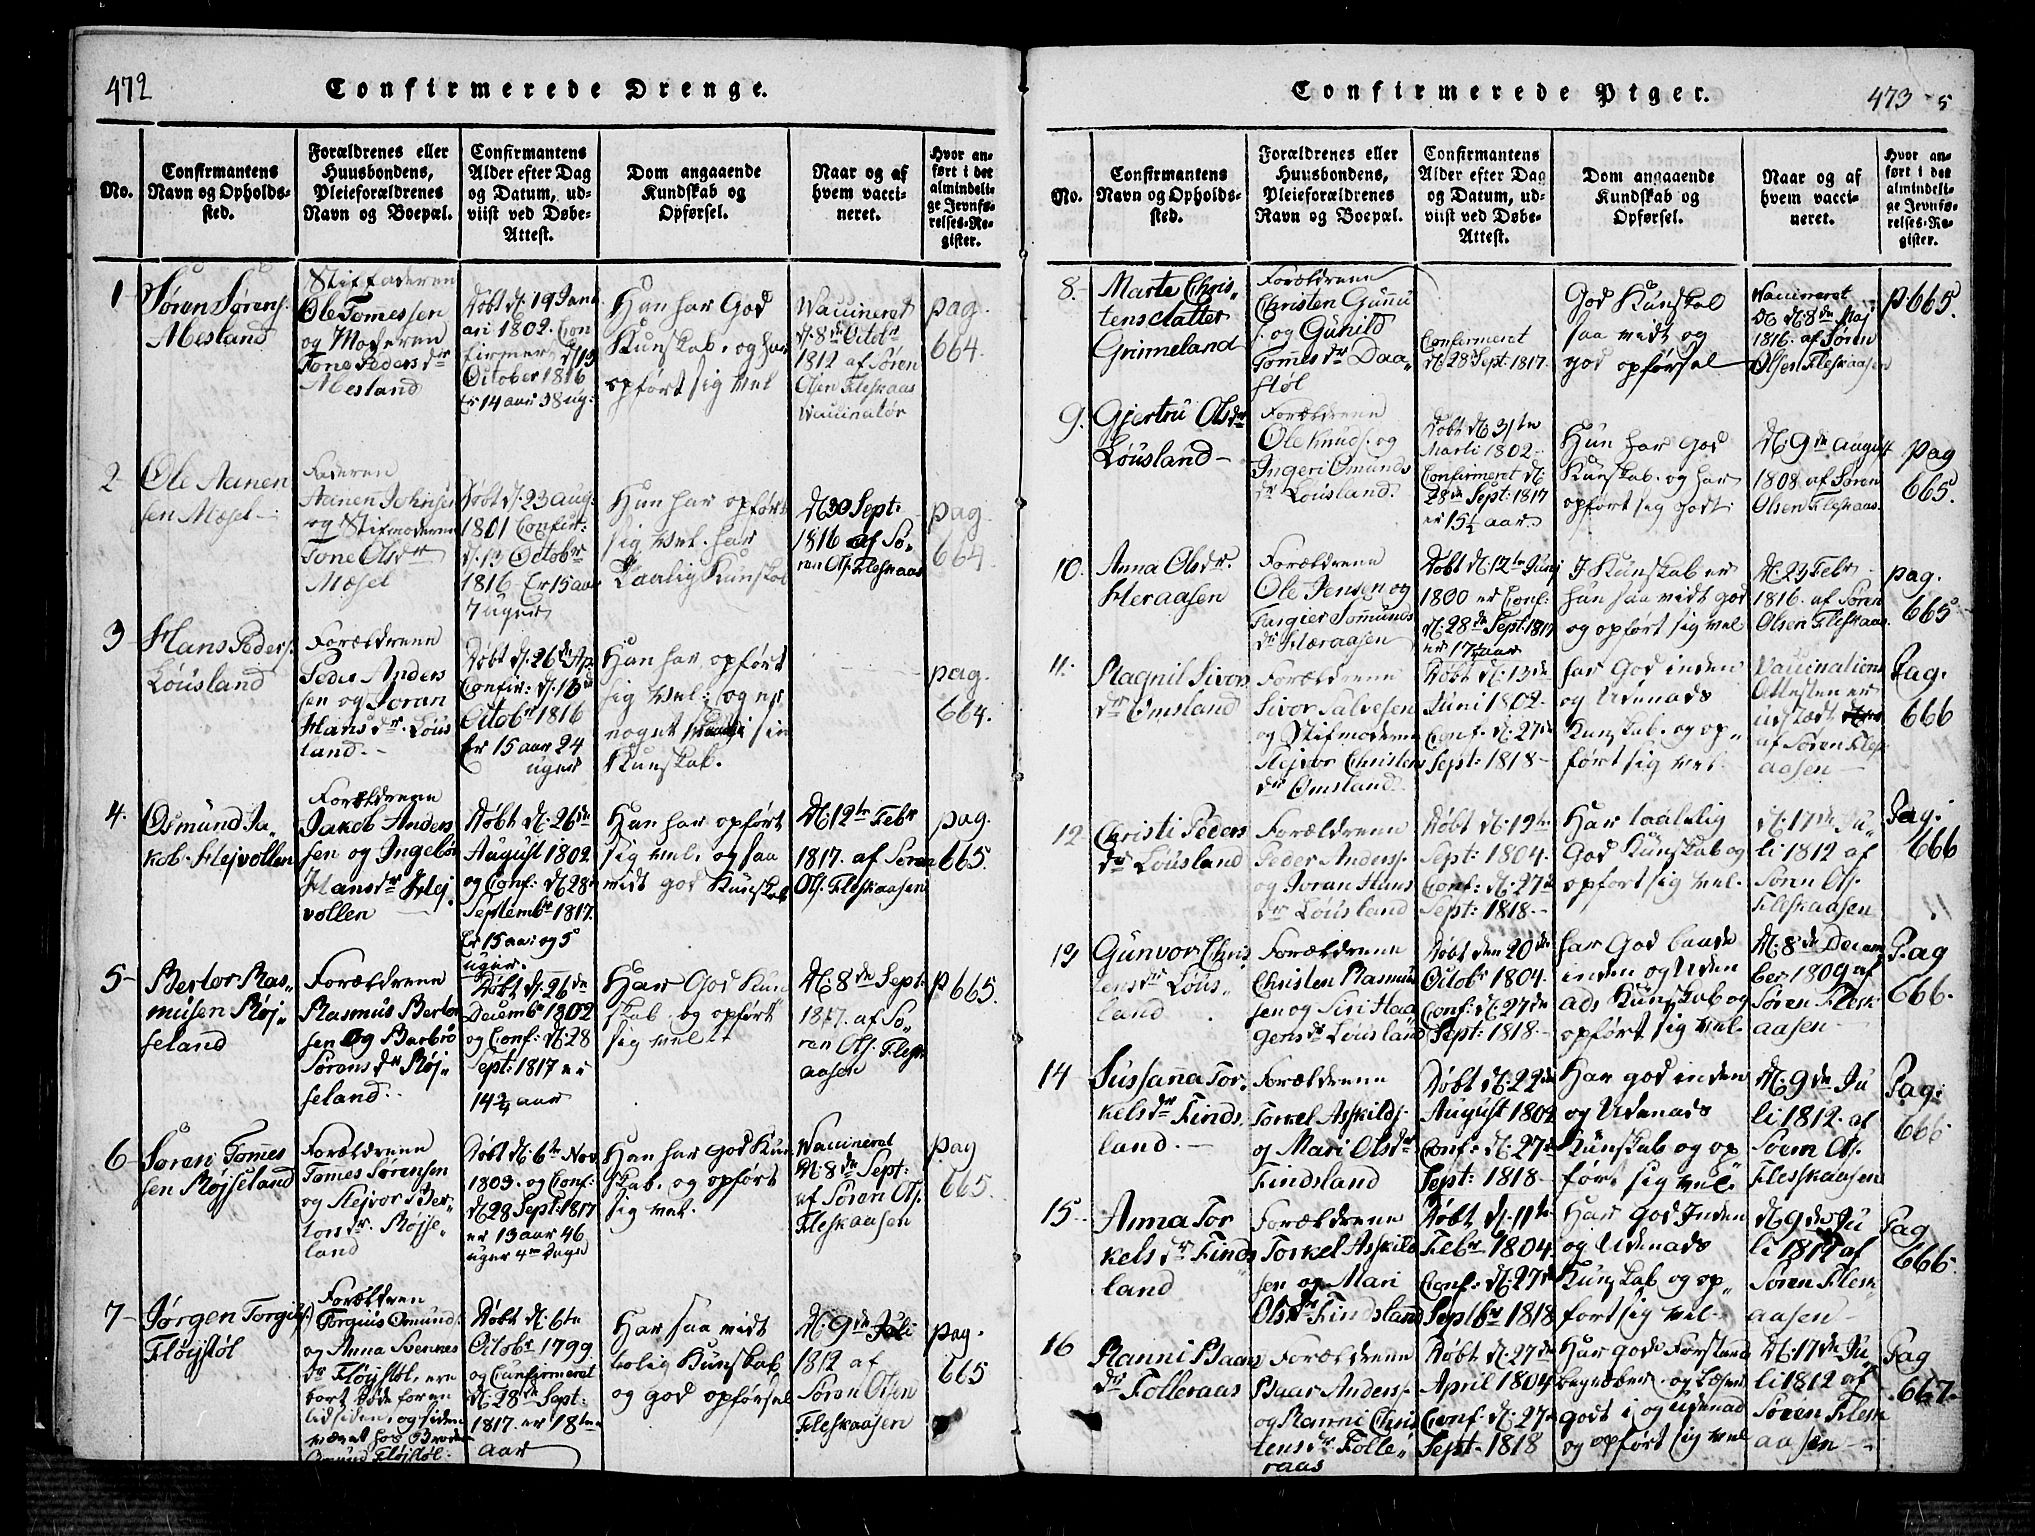 472
Confirmerede Drenge.
No.
Confirmantens
Navn og Opholds-
sted.
Forældrenes eller
Huusbondens,
Pleieforældrenes
Navn og Boepæl.
Confirmantens
Alder efter Dag
og Datum, ud-
viist ved Døbe-
Attest.
Dom angaaende
Kundskab og
Opførsel.
Naar og af
hvem vacci-
neret.
Hvor an-
ført i det
almindeli-
ge Jevnfø-
relses-Re-
gister.
1
Søren Sørens.
Mesland
Stiffaderen
Ole Tommessen
og Moderen
Tone Peders dr
Mesland
Døbt d. 19 Janu
ari 1802. Con
firmer d. 13
October 1816
Er 14 aar 38 ug:
Han har God
Kunskab, og har
opført sig vel
Vaccineret
d. 8de Octobr
1812 af Søren
Olsen Fleskaas
Vaccinatør
pag.
664.
2
Ole Aanen
sen Mæsel
Faderen
Aanen Johnsen
og Stifmoderen
Tone Olsdr
Mæsel
Døbt d. 23 aug:
1801 Confir:
d. 13 Octobr
1816 Er 15 aar
7 uger
Han har opført
sig vel. har
Laalig Kunskab
D. 30 Sept:
1816 af Sø-
ren Ols. Fleskaas
pag.
664.
3
Hans Peders.
Lousland
Forældrene
Peder Anders
sen og Joran
Hans dr. Lous
land.
Døbt d. 26de Ap.
Confir: d. 13de
Octobr 1816
Er 15 aar 24
uger
Han har opført
sig vel: og er
noget i sin
Kunskab.
pag.
664.
4.
Osmund Ja-
kob. Hejvollen
Forældrene
Jakob Anders
sen og Ingebor
Hansdr Hej.
vollen
Døbt d. 26de
August 1802
og Conf: d. 28de
Septembr 1817.
Er 15 aar og 5
uger.
Han har opført
sig vel. og saa
vidt god Kunskab
D. 12te Febr
1817. af Søren
Ols. Fleskaasen
pag.
665.
5
Bertor Ras-
musen Røj-
seland
Forældrene
Rasmus Bertor
sen og Barbro
Sørens dr Røj-
seland.
Døbt d. 26de
Decembr 1802
og Conf: d. 28
Sept: 1817 er
14 3/4 aar
Har God Kun
skab og opført
sig vel
D. 8de Sept:
1817. af Sø-
ren Ols. Flesk
aasen
P 665.
6
Søren Tommes
sen Røjseland
Forældrene
Tomes Sørensen
og Hejvor Ber-
tors dr. Røjse-
land
Døbt d. 6te Nov
1803. og Conf:
d. 28 Sept: 1817
er 13 aar 46
uger 4re Dage
Han har God Kun
skab, og opført
sig vel.
Vaccineret
d. 8de Sept:
af Søren Ols.
Fleskaasen
pag
665.
7
Jørgen Torgius.
Fløjstøl
Forældren
Torgius Omund.
og Anna Svennes
dr Fløjstøl, ere
bort døde for en
tid siden, og siden
været hos Broder
Omund Fløjstøl.
Døbt d. 6te
Octobr 1799
og Confirmeret
d. 28de Sept:
1817. er 18ten
aar
Har saa vidt
Kunskab
og god opførsel
D. 9de Juli
1812 af
Søren Olsen
Fleskaasen
pag.
665
Confirmerede Piger.
473 5
No.
Confirmantens
Navn og Opholds-
sted.
Forældrenes eller
Huusbondens,
Pleieforældrenes
Navn og Boepæl.
Confirmantens
Alder efter Dag
og Datum, ud-
viist ved Døbe-
Attest.
Dom angaaende
Kundskab og
Opførsel.
Naar og af
hvem vacci-
neret.
Hvor an-
ført i det
almindeli-
ge Jevnfø-
relses-Re-
gister.
8.
Marte Chris-
tensdatter
Grimeland
Forældrene
Christen Gunnu
s. og Gunild
Tommes dr Daa-
støl
Confirmeret
d. 28 Sept: 1817.
God Kunskab
saa vidt og
god opførsel
Vaccineret
d. 8de Maj
1816. af Søren
Olsen Fleskaasen
p. 665.
9.
Gjertru Olsdr
Lousland
Forældrene
Ole Knuds. og
Ingeri Omunds
dr Lousland.
Døbt d. 31te
Marti 1802
Confirmeret d.
28de Sept: 1817
er 15 1/2 aar.
Hun har God
Kunskab. og har
opført sig godt
D. 9de August
1808. af Søren
Olsen Fleskaas.
pag
665.
10.
Anna Olsdr.
Heraasen
Forældrene
Ole Jensen og
Tommunds
dr Heraasen
Døbt d. 12te Junj
1800 er Conf:
d. 28de Sept: 1817
er 17 aar
I Kunskab er
hun saa vidt god
og opført sig vel
D. 23 Febr
1816. af Søren
Olsen Fleskaas.
pag.
665.
11.
Ragnil Sivors
dr Omsland
Forældrene
Sivor Salvesen
og Stifmoderen
Hejvor Christens
dr Omsland.
Døbt d. 13de
Juni 1802.
Conf. d. 27de
Sept: 1818
har God inden
og Udenads
Kunskab. og op-
ført sig vel.
Vaccinations
Attesten er
udstædt
af Søren Flesk
aasen
Pag.
666
12
Christi Peders
dr Lousland
Forældrene
Peder Anderss.
og Joran Hans
dr Lousland
Døbt d. 19te
Sept: 1804.
Conf: d. 27de
Sept: 1818.
Har taalelig
God Kunskab og
opført sig vel.
d. 17de Ju-
li 1812 af
Søren Ols.
Fleskaasen
Pag:
666
13
Gunvor Chris
tensdr Lous-
land
Forældrene
Christen Rasmus
sen og Siri Haa
gensdr Lousland
Døbt den 20de
Octobr 1804.
Conf: d. 27de
Sept: 1818
har God baade
inden og Uden
ads Kunskab og
opført sig vel.
D. 8de Decem
ber 1809 af
Søren Flesk
aasen
Pag
666.
14
Sussanna Tor-
kelsdr Finds
land.
Forældrene
Torkel Asskilds.
og Mari Olsdr
Findsland
Døbt d. 22de
August 1802
Conf: d. 27de
Sept: 1818
Har god inden
og Udenads
Kunskab og op
før. sig vel.
D. 9de Ju
li 1812. af
Søren Ols.
Flesskaasen
Pag:
666.
15
Anna Tor
kelsdr Finds
land
Forældrene
Torkel Asskild
sen og Mari
Olsdr Findsland
Døbt d. 11te
Febr 1804.
Conf: d. 27de
Septbr 1818
Har God Inden
og Udenads
Kunskab og op-
ført sig vel.
D. 9de Ju
li 1812 af
Søren Flesk
aasen
Pag
666.
16
Ranni Baars
dr Folleraas
Forældrene
Baar Anderss.
og Ranni Chris
tensdr Folle-
raas
Døbt d. 27de
April 1804
Conf: d. 27de
Sept. 1818
Har gode Forstand
begreber. og Læser
godt i og udenad
og opført sig vel
D. 17de Ju
li 1812 af
Søren Flesk
aasen
Pag
667.